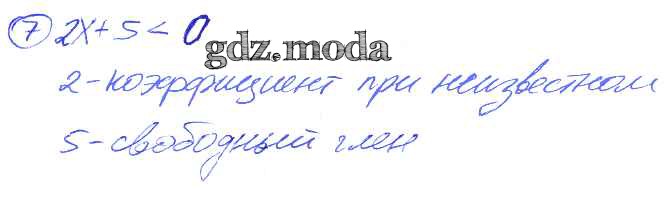 7 2x + 5 < 0
gdz.moda
2 - коэффициент при неизвестном
5 - свободный член